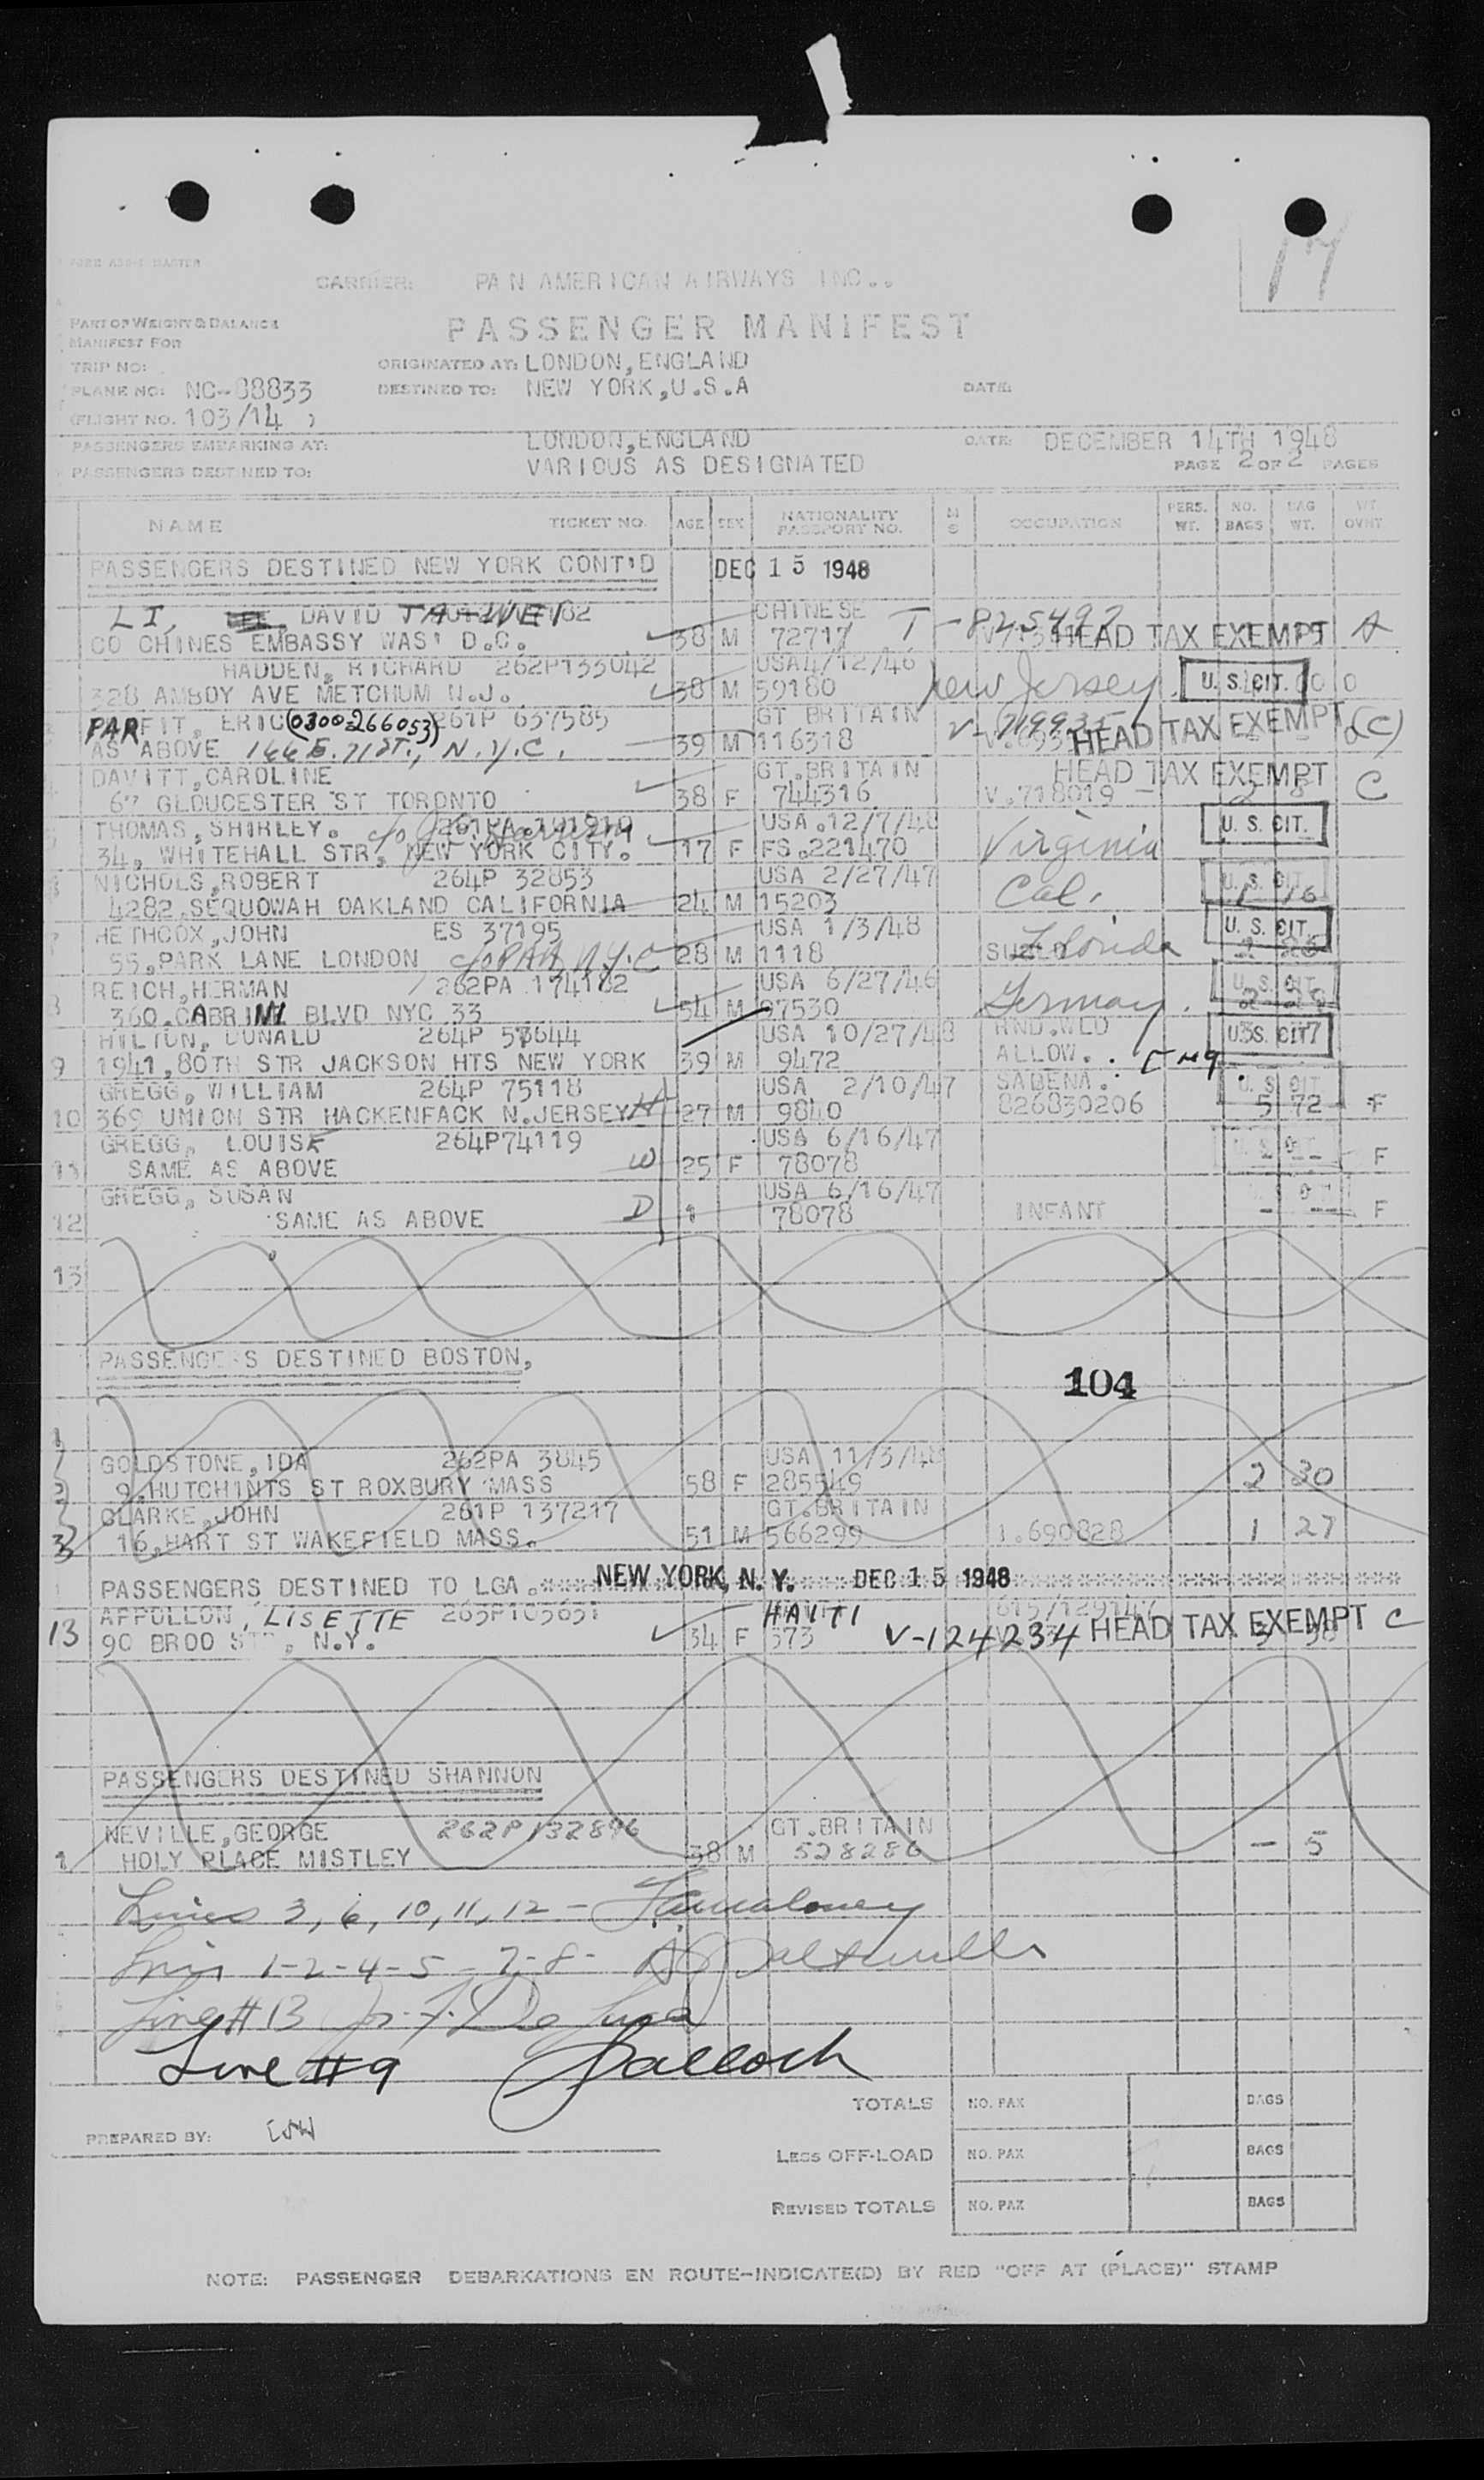 17
FORM ADS-1 MASTER
CARRIER: PAN AMERICAN AIRWAYS INC..
PART OF WEIGHT & BALANCE
MANIFEST FOR
PASSENGER MANIFEST
TRIP NO: ORIGINATED AT: LONDON, ENGLAND
PLANE NO: NC-88833 DESTINED TO: NEW YORK, U.S.A DATE:
(FLIGHT NO. 103/14 )
PASSENGERS EMBARKING AT: LONDON, ENGLAND DATE: DECEMBER 14TH 1948
PASSENGERS DESTINED TO: VARIOUS AS DESIGNATED PAGE 2 OF 2 PAGES
NAME TICKET NO. AGE SEX NATIONALITY PASSPORT NO. OCCUPATION PERS. WT. NO. BAGS BAG WT. WT OVNT
PASSENGERS DESTINED NEW YORK CONT'D DEC 15 1948
LI, DAVID TA-WEI CHINESE T-825492
CO CHINES EMBASSY WAS' D.C. 38 M 72717 HEAD TAX EXEMPT A
HADDEN, RICHARD 262P133042 USA 4/12/46
328 AMBOY AVE METCHUM N.J. 38 M 59180 New Jersey. U. S. CIT.
PARFIT, ERIC (0300-266053) 261P 657585 GT BRITAIN V-719935
AS ABOVE 166 E. 71 ST., N.Y.C. 39 M 116318 HEAD TAX EXEMPT (C)
DAVITT, CAROLINE GT.BRITAIN HEAD TAX EXEMPT
67 GLOUCESTER ST TORONTO 38 F 744316 V.718019 2 8 C
THOMAS, SHIRLEY. c/o 261PA.191910 USA.12/7/48 U. S. CIT.
34, WHITEHALL STR, NEW YORK CITY. 17 F FS.221470 Virginia
NICHOLS, ROBERT 264P 32853 USA 2/27/47 U. S. CIT.
4282 SEQUOWAH OAKLAND CALIFORNIA 24 M 15203 Cal. 1 16
HETHCOX, JOHN ES 37195 USA 1/3/48 U. S. CIT.
55, PARK LANE LONDON c/o PAA N.Y.C 28 M 1118 Florida 2 26
REICH, HERMAN 262PA 174182 USA 6/27/46 U. S. CIT.
8 360 CABRINI BLVD NYC 33 54 M 97530 Germany.
HILTON, DONALD 264P 53644 USA 10/27/48 U. S. CIT
9 1941, 80TH STR JACKSON HTS NEW YORK 39 M 9472 ALLOW.
GREGG, WILLIAM 264P 75118 USA 2/10/47 SABENA. U. S. CIT.
10 369 UNION STR HACKENFACK N.JERSEY H 27 M 9840 826830206 5 72 F
GREGG, LOUISE 264P74119 USA 6/16/47
11 SAME AS ABOVE W 25 F 78078 F
GREGG, SUSAN USA 6/16/47
12 SAME AS ABOVE D 1 78078 INFANT - - F
13
PASSENGERS DESTINED BOSTON,
104
GOLDSTONE, IDA 262PA 3845 USA 11/3/48
9, HUTCHINTS ST ROXBURY MASS 58 F 285549 2 30
CLARKE, JOHN 261P 137217 GT.BRITAIN
3 16, HART ST WAKEFIELD MASS. 51 M 566299 1.690828 1 27
PASSENGERS DESTINED TO LGA. NEW YORK, N. Y. DEC 15 1948
APPOLLON, LISETTE 263P103631 HAITI
13 90 BROD STR, N.Y. 34 F 373 V-124234 HEAD TAX EXEMPT C
PASSENGERS DESTINED SHANNON
NEVILLE, GEORGE 262P132896 GT.BRITAIN
1 HOLY PLACE MISTLEY 38 M 528286 - 5
Lines 3, 6, 10, 11, 12 -
Lines 1-2-4-5-7-8-
Line #13
Line #9
TOTALS NO. PAX BAGS
PREPARED BY:
LESS OFF-LOAD NO. PAX BAGS
REVISED TOTALS NO. PAX BAGS
NOTE: PASSENGER DEBARKATIONS EN ROUTE-INDICATE(D) BY RED "OFF AT (PLACE)" STAMP